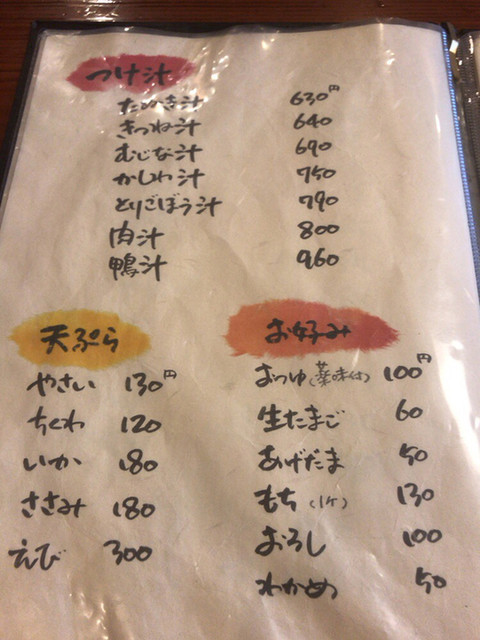 つけ汁
たぬき汁 630円
きつね汁 640
むじな汁 690
かしわ汁 750
とりごぼう汁 790
肉汁 800
鴨汁 960
天ぷら
やさい 130円
ちくわ 120
いか 180
ささみ 180
えび 300
お好み
おつゆ(薬味付) 100円
生たまご 60
あげだま 50
もち(1ケ) 130
おろし 100
わかめ 50